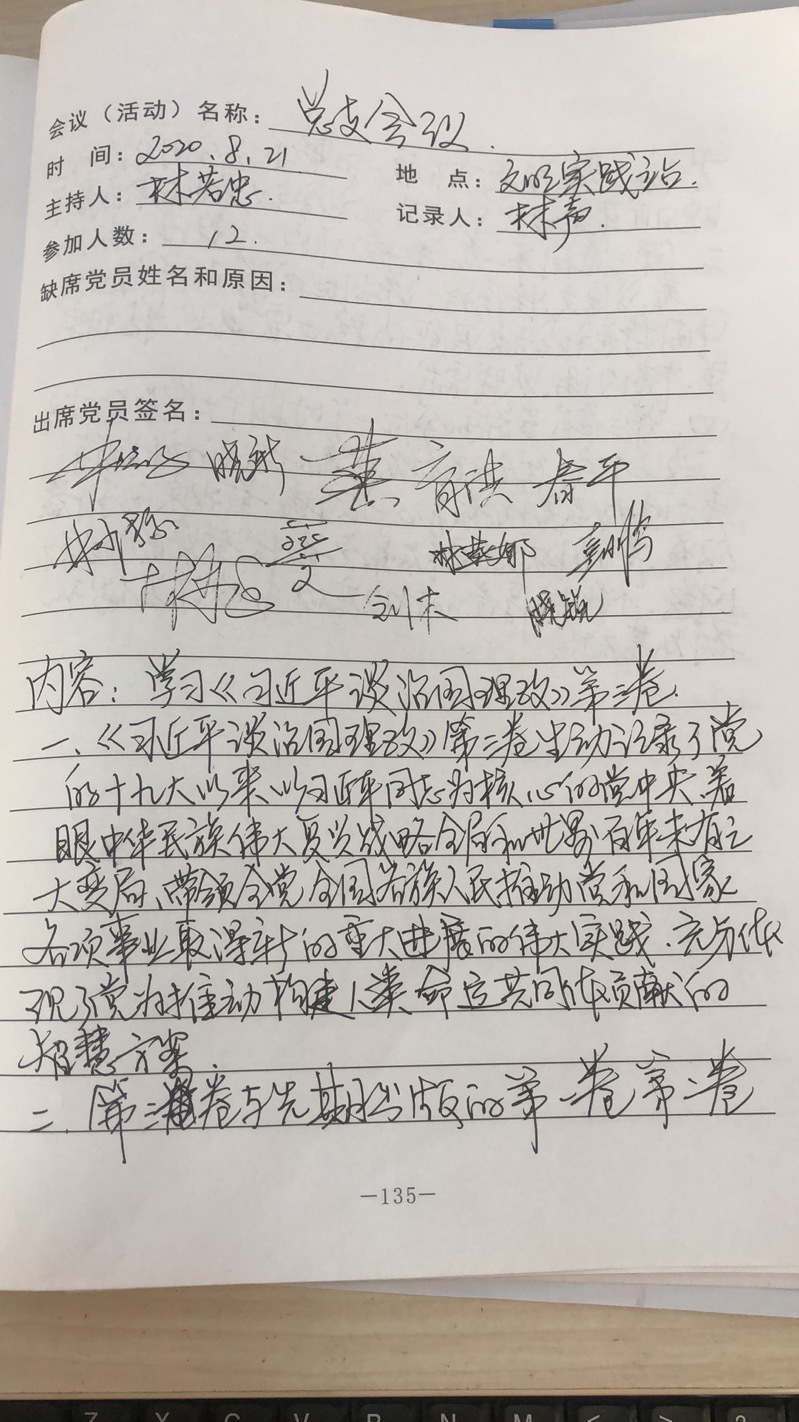 会议（活动）名称：总支会议.
时 间：2020.8.21 地 点：文明实践站.
主持人：林若忠. 记录人：林声.
参加人数：12.
缺席党员姓名和原因：
出席党员签名：
育洪 春平
林燕娜
剑木 晓锐
内容：学习《习近平谈治国理政》第三卷.
一、《习近平谈治国理政》第三卷生动记录了党
的十九大以来以习近平同志为核心的党中央着
眼中华民族伟大复兴战略全局和世界百年未有之
大变局、带领全党全国各族人民推动党和国家
各项事业取得新的重大进展的伟大实践.充分体
现了党为推动构建人类命运共同体贡献的
智慧方案.
二、第三卷与先期出版的第一卷第二卷
—135—
Z X C V B N M < > ?